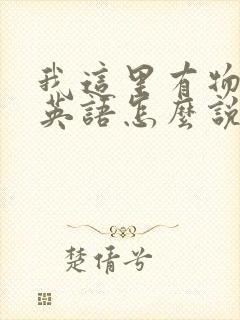 我這里有物
英語怎麼說
楚倩兮